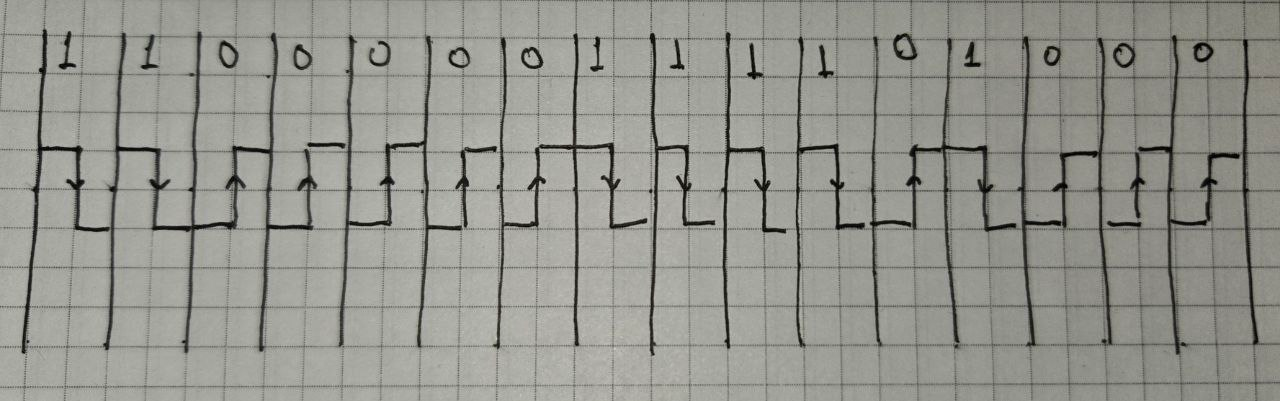 1 1 0 0 0 0 0 1 1 1 1 0 1 0 0 0